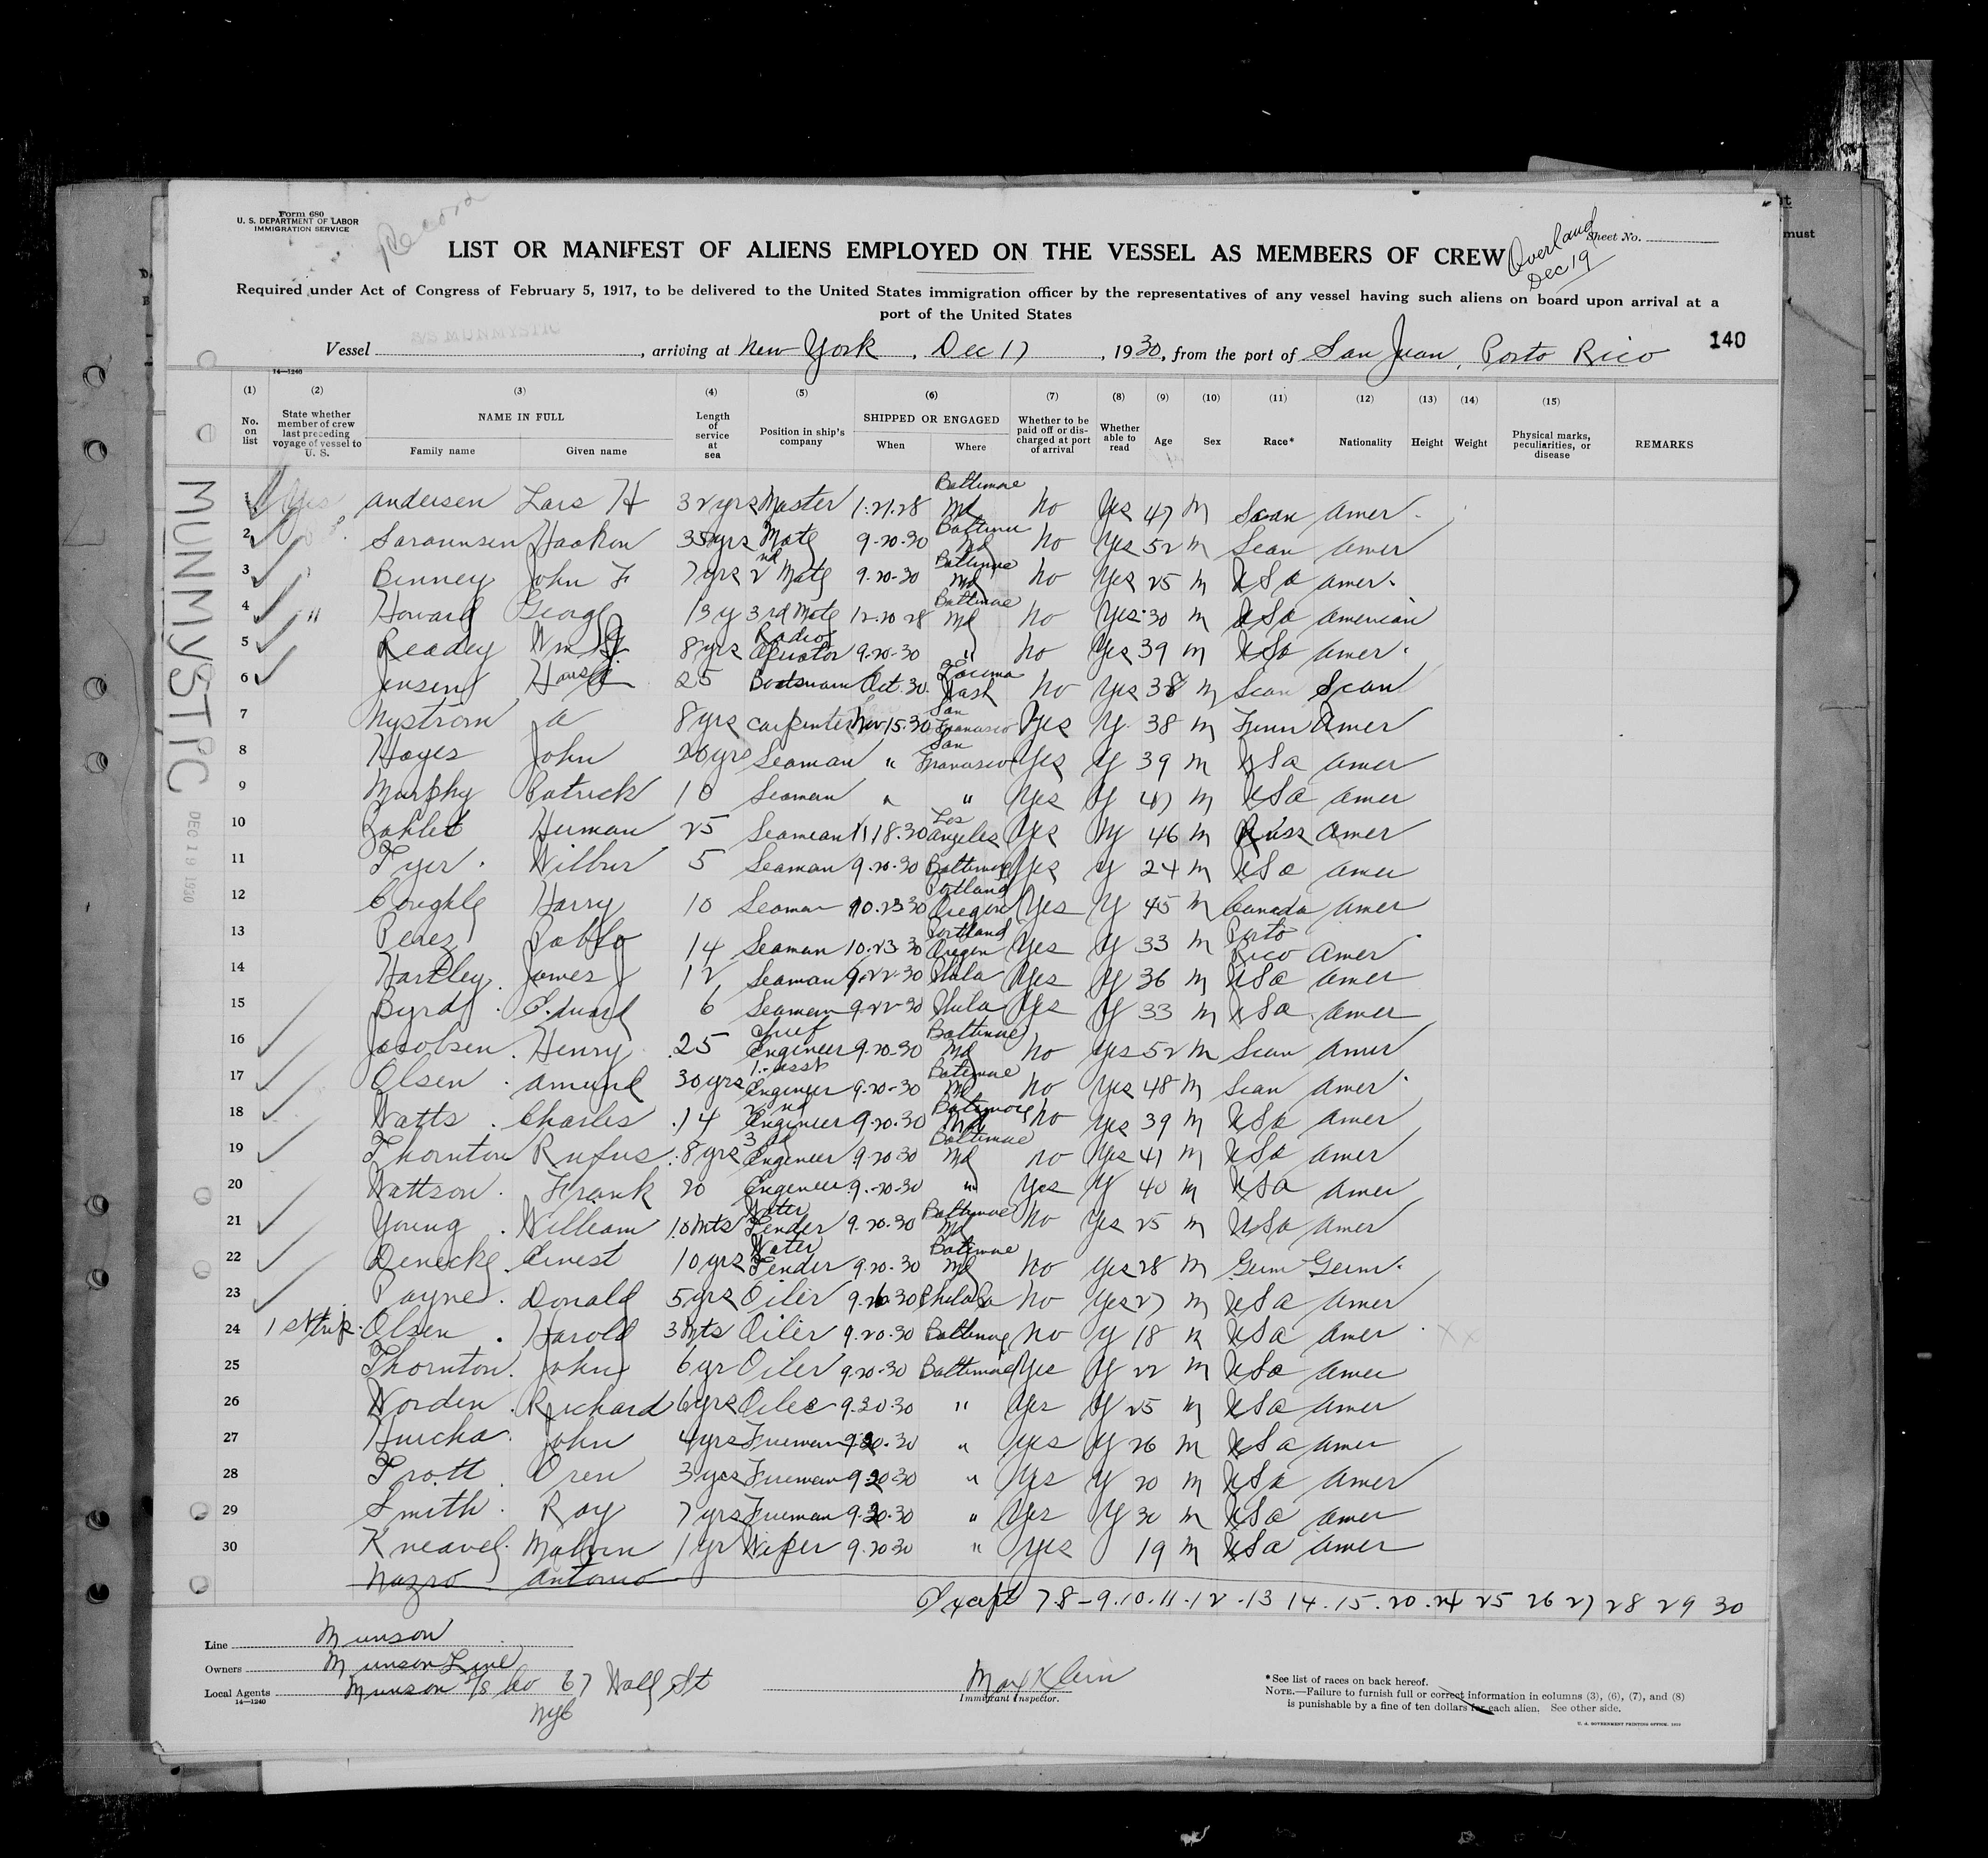 Form 680
U. S. DEPARTMENT OF LABOR
IMMIGRATION SERVICE
Record
LIST OR MANIFEST OF ALIENS EMPLOYED ON THE VESSEL AS MEMBERS OF CREW
Overland
Dec 19
Sheet No.
Required under Act of Congress of February 5, 1917, to be delivered to the United States immigration officer by the representatives of any vessel having such aliens on board upon arrival at a
port of the United States
S/S MUNMYSTIC
Vessel , arriving at New York , Dec 17 , 1930, from the port of San Juan, Porto Rico
140
14—1240
(1) (2) (3) (4) (5) (6) (7) (8) (9) (10) (11) (12) (13) (14) (15)
No. on list State whether member of crew last preceding voyage of vessel to U. S. NAME IN FULL Family name Given name Length of service at sea Position in ship's company SHIPPED OR ENGAGED When Where Whether to be paid off or discharged at port of arrival Whether able to read Age Sex Race* Nationality Height Weight Physical marks, peculiarities, or disease REMARKS
MUNMYSTIC
DEC 19 1930
1 Yes Andersen Lars H 32 yrs Master 1.21.28 Baltimore Md No Yes 47 M Scan Amer
2 Haakon 35 yrs Mate 9-20-30 Baltimore Md No Yes 52 M Scan Amer
3 Binney John F 7 yrs 2nd Mate 9-20-30 Baltimore Md No Yes 25 M USA Amer.
4 " Howard George 13 y 3rd Mate 12-20-28 Baltimore Md No Yes 30 M USA American
5 Readey Wm 8 yrs Radio Operator 9-20-30 " No Yes 39 M USA Amer.
6 Jensen 25 Boatswain Oct. 30 Tacoma Wash No Yes 38 M Scan Scan
7 Nystrom A 8 yrs Carpenter Nov 15.30 San Francisco Yes Y. 38 M Finn Amer
8 Hayes John 20 yrs Seaman " San Francisco Yes Y 39 M USA Amer
9 Murphy Patrick 10 Seaman " " Yes Y 47 M USA Amer
10 Herman 25 Seaman 11.18.30 Los Angeles Yes Y 46 M Russ Amer
11 Tyer Wilbur 5 Seaman 9-20-30 Baltimore Yes Y 24 M USA Amer
12 Harry 10 Seaman 10.23.30 Portland Oregon Yes Y 45 M Canada Amer
13 Perez Pablo 14 Seaman 10.23.30 Portland Oregon Yes Y 33 M Porto Rico Amer
14 Hartley James J 12 Seaman 9-22-30 Phila Yes Y 36 M USA Amer
15 Byrd Edward 6 Seaman 9-22-30 Phila Yes Y 33 M USA Amer
16 Jacobsen Henry 25 Chief Engineer 9-20-30 Baltimore Md No Yes 52 M Scan Amer
17 Olsen Amund 30 yrs 1. Asst Engineer 9-20-30 Baltimore Md No Yes 48 M Scan Amer
18 Watts Charles 14 2nd Engineer 9-20-30 Baltimore Md No Yes 39 M USA Amer
19 Thornton Rufus 8 yrs 3rd Engineer 9-20-30 Baltimore Md No Yes 41 M USA Amer
20 Wattson Frank 20 Engineer 9-20-30 " Yes Y 40 M USA Amer
21 Young William 10 Mts Water Tender 9-20-30 Baltimore Md No Yes 25 M USA Amer
22 Denecke Ernest 10 yrs Water Tender 9-20-30 Baltimore Md No Yes 28 M Germ Germ.
23 Payne Donald 5 yrs Oiler 9.26.30 Phila Pa No Yes 27 M USA Amer
24 1st trip Olsen Harold 3 Mts Oiler 9-20-30 Baltimore No Y 18 M USA Amer XX
25 Thornton John 6 yr Oiler 9-20-30 Baltimore Yes Y 22 M USA Amer
26 Worden Richard 6 yrs Oiler 9.20.30 " Yes Y 25 M USA Amer
27 John 4 yrs Fireman 9.20.30 " Yes Y 26 M USA Amer
28 Trott Oren 3 yrs Fireman 9.20.30 " Yes Y 20 M USA Amer
29 Smith Roy 7 yrs Fireman 9.20.30 " Yes Y 30 M USA Amer
30 Kneavel Malvin 1 yr Wiper 9.20.30 " Yes 19 M USA Amer
Nazro Antonio
Except 7.8-9.10.11.12.13 14.15.20.24 25 26 27 28 29 30
Line Munson
Owners Munson Line
Local Agents Munson S/S Co 67 Wall St
NYC
14—1240
Max Klein
Immigrant Inspector.
*See list of races on back hereof.
NOTE.—Failure to furnish full or correct information in columns (3), (6), (7), and (8)
is punishable by a fine of ten dollars for each alien. See other side.
U. S. GOVERNMENT PRINTING OFFICE: 1930
must